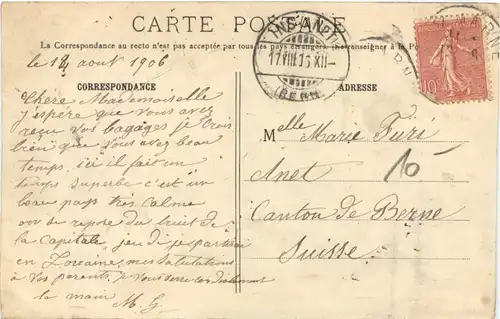 CARTE POSTALE
La Correspondance au recto n'est pas acceptée par tous les pays étrangers. (Se renseigner à la Po
le 14 aout 1906
CORRESPONDANCE
ADRESSE
Chere Mademoiselle
j'espère que vous avez
reçu vos bagages je crois
bien que vous avez beau
temps. ici il fait un
temps superbe c'est un
beau pays très calme
on se repose du bruit de
la Capitale, jeudi je partirai
en Loraine, mes salutations
à vos parents. je vous serre cordialement
la main M. G.
Melle Marie Füri
Anet
Canton de Berne
Suisse.
10
INS (ANET)
17.VIII.06.XII-
(BERN)
10